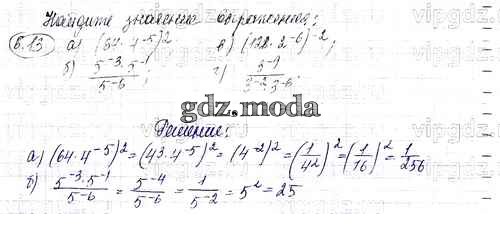 Найдите значения выражения:
6.13 а) (64·4⁻⁵)² в) (128·2⁻⁶)⁻²;
б) 5⁻³·5⁻¹/5⁻⁶; г) 3⁻⁹/3⁻²·3⁻⁶.
gdz.moda
Решение:
а) (64·4⁻⁵)² = (43·4⁻⁵)² = (4⁻²)² = (1/42)² = (1/16)² = 1/256
б) 5⁻³·5⁻¹/5⁻⁶ = 5⁻⁴/5⁻⁶ = 1/5⁻² = 5² = 25